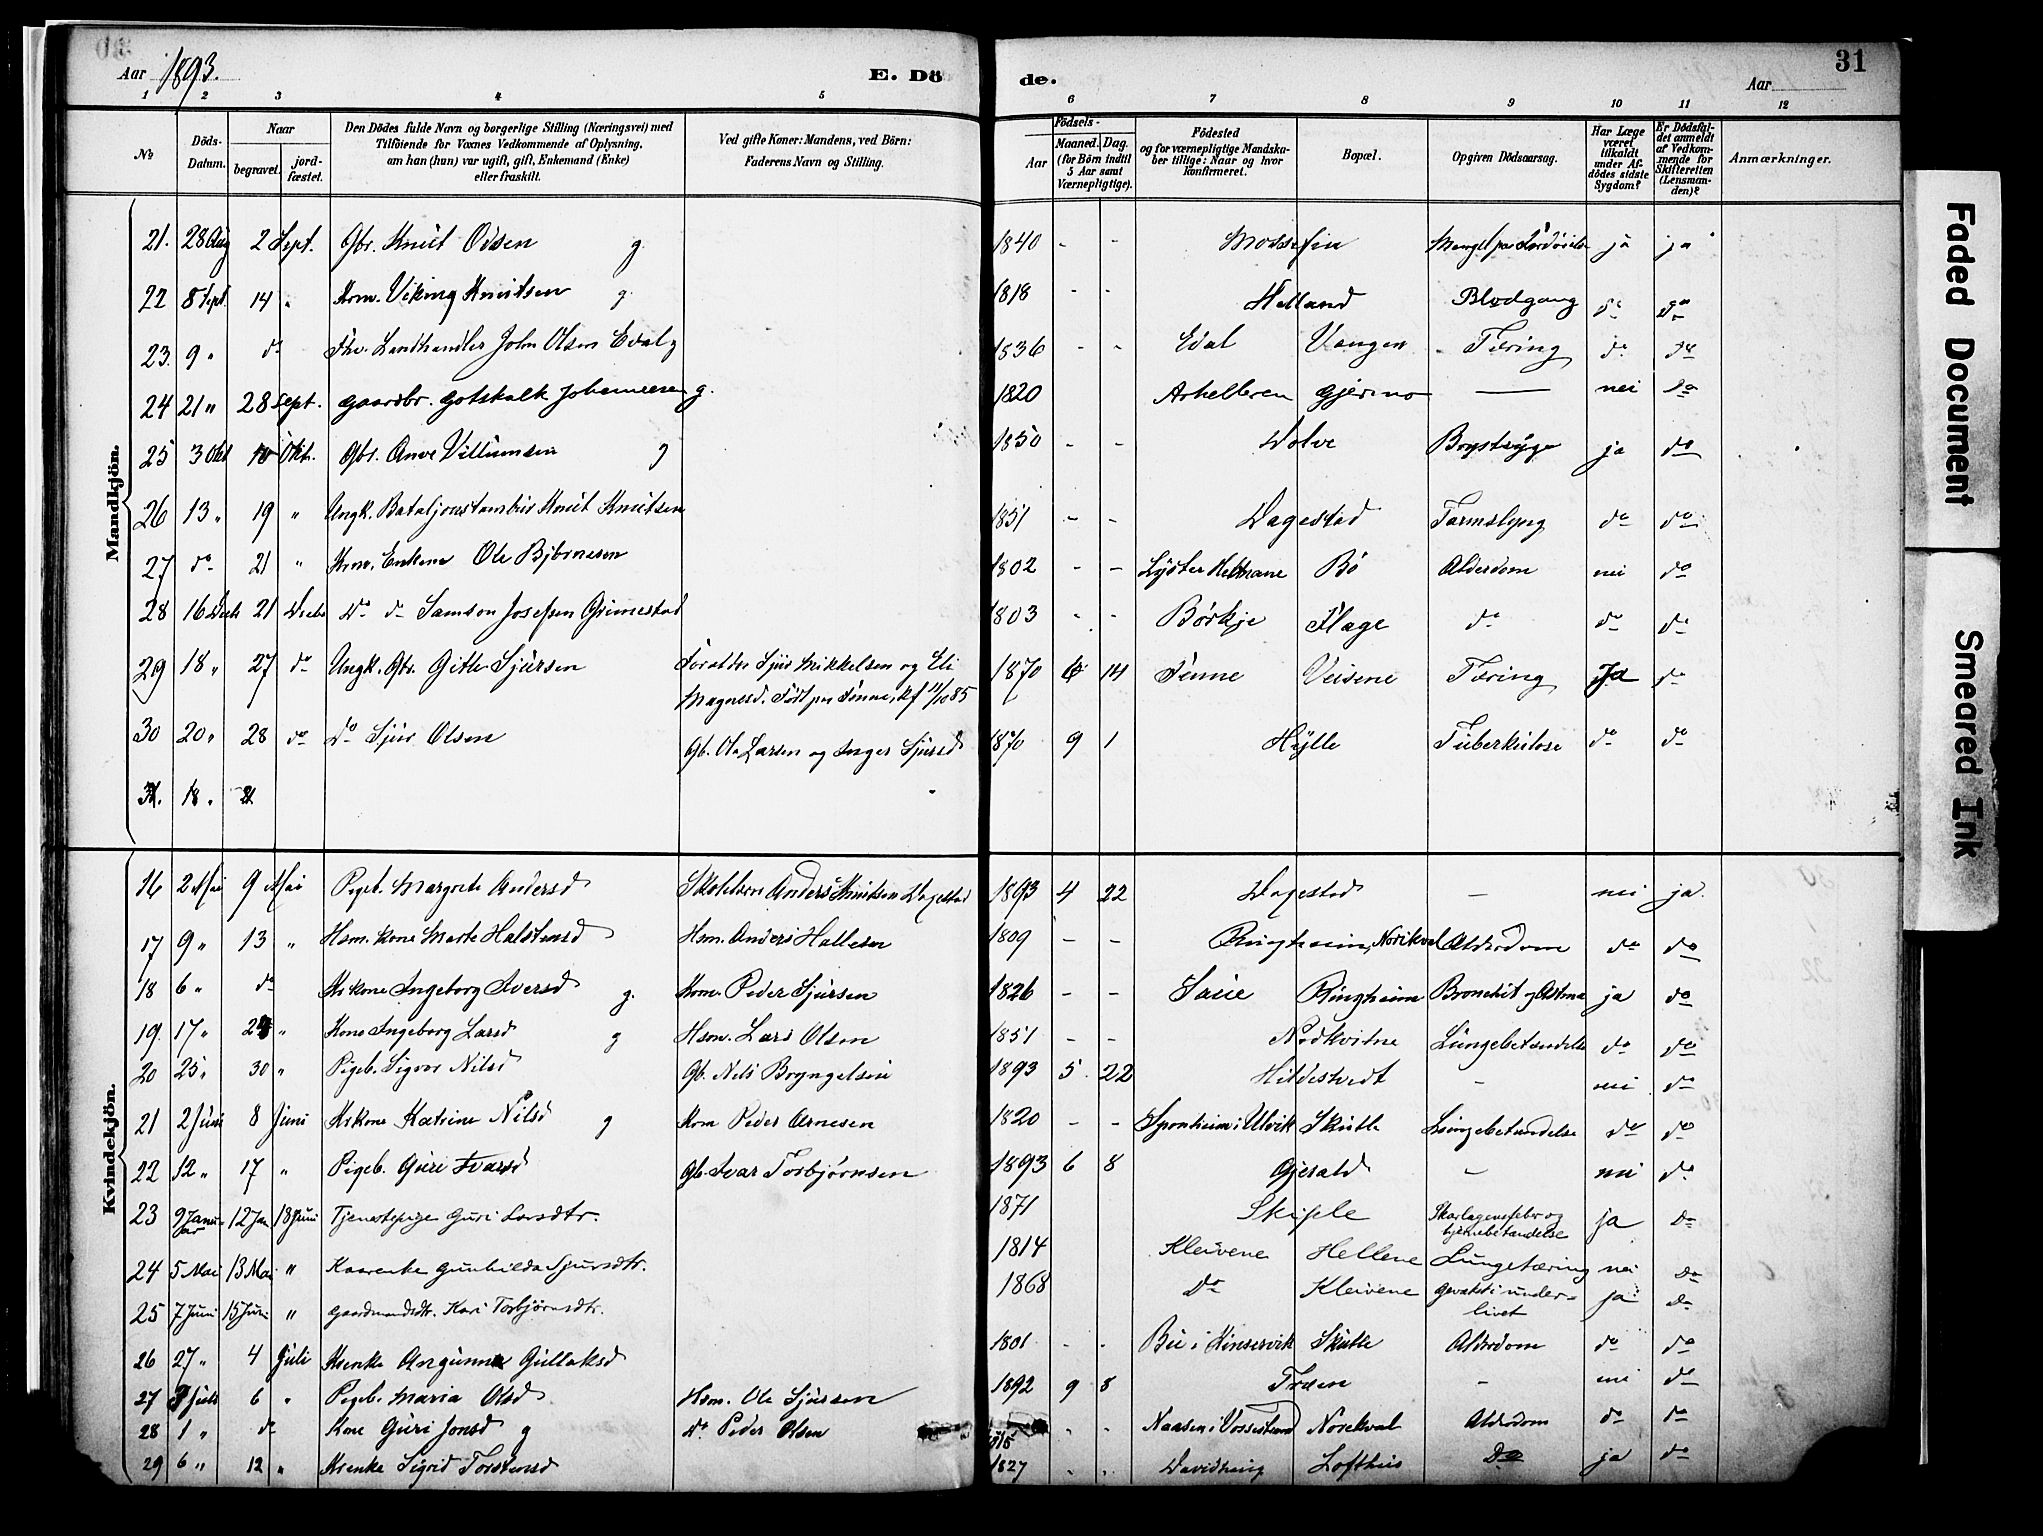 Aar 1893. E. Dö de. Aar 31
1 2 3 4 5 6 7 8 9 10 11 12
№ Döds-Datum. Naar begravet. jordfæstet. Den Dödes fulde Navn og borgerlige Stilling (Næringsvei) med Tilföiende for Voxnes Vedkommende af Oplysning, om han (hun) var ugift, gift, Enkemand (Enke) eller fraskilt. Ved gifte Koner: Mandens, ved Börn: Faderens Navn og Stilling. Födsels- Aar Maaned. Dag. (for Börn indtil 5 Aar samt Værnepligtige). Födested og for værnepligtige Mandskaber tillige: Naar og hvor konfirmeret. Bopæl. Opgiven Dödsaarsag. Har Læge været tilkaldt under Afdödes sidste Sygdom? Er Dödsfaldet anmeldt af Vedkommende for Skifteretten (Lensmanden)? Anmærkninger.
Mandkjön.
21. 28 Aug 2 Sept. Gbr. Knut Odsen g 1840 - - Mossefin Mangel paa Fordøielse ja ja
22 8 Sept. 14 " Krm. Viking Knutsen g 1818 - - Helland Blodgang do do
23. 9 " do Fhv. Landhandler John Olsen Edal g 1836 - - Edal Vangen Tæring do do
24 21 " 28 Sept. Gaardbr. Gotskalk Johannesen g. 1820 Arhelleren Gjermo — nei do
25 3 Okt 10 Okt. Gbr. Anve Villumsen g 1850 - - Dolve Brystsyge ja do
26 13 " 19 " Ungk. Bataljonstambur Knut Knutsen 1851 - - Dagestad Tarmslyng do do
27 do 21 " Krm. Enkem Ole Bjørnesen 1802 - - Lyster Bø Alderdom nei do
28 16 Decb 21 Decbr Do do Samson Josefsen Grimestad 1803 - - Børkje Flage do do do
29 18 " 27 do Ungk. Gbr. Gitle Sjursen Forældre Sjur Mikkelsen og Eli 1870 6 14 Finne Veisene Tæring Ja do
Magnesd. Født paa Finne, kf 11/10 85
30 20 " 28 do Do Sjur Olsen Gb. Ole Larsen og Inger Sjursd 1870 9 1 Hylle Tuberkulose do do
31. 18 " 21
Kvindekjön.
16 2 Mai 9 Mai Pigeb. Margrete Andersd Skoleholder Anders Knutsen Dagestad 1893 4 22 Dagestad - nei ja.
17 9 " 13 " Hsm. kone Marte Halstensd Hsm. Anders Hallesen 1809 - - Ringheim, Norekval Alderdom do do
18 6 " do Krkone Ingeborg Iversd g. Krm. Peder Sjursen 1826 - - Saue Ringheim Bronchit og Astma ja do
19. 17 " 24 " Kone Ingeborg Larsd g Hsm. Lars Olsen 1851 - - Nedkvitne Lungebetændelse do do
20 25 " 30 " Pigeb. Sigvor Nilsd Gb. Nils Bryngelsen 1893 5 22 Hildestvedt - nei do
21 2 Juni 8 Juni Krkone Katrine Nilsd g Krm Peder Arnesen 1820 - - Sponheim i Ulvik Skutle Lungebetændelse do do
22 12 " 17 " Pigeb. Guri Ivarsd Gb. Ivar Torbjørnsen 1893 6 8 Gjerald - nei do
23 9 Januar 12 Jan 18 Juni Tjenestepige Guri Larsdtr. 1871 Skiple Skarlagensfeber og hjernebetændelse ja do
24 5 Mai 13 Mai " Kaarenke Gunhilda Sjursdtr. 1814 Kleivene Hellene Lungetæring nei do
25 7 Juni 15 Juni " Gaardmandsdtr. Kari Torbjørnsdtr. 1868 Do Kleivene Gevækst i underlivet ja do
26 27 " 4 Juli Krenke Angunna Gullaksd 1801 - - Bu i Kinservik Skutle Alderdom do do
27 Juli 6 " Pigeb. Maria Olsd Hsm. Ole Sjursen 1892 9 8 Træen - nei do
28 1 " do Kone Guri Jonsd g Do Peder Olsen 1815 - - Naasen i Vossestrand Norekval Alderdom do do
29 6 " 12 " Krenke Sigrid Torstensd 1827 - - Davidhaug Lofthus Do ja do
Faded Document
Smeared Ink